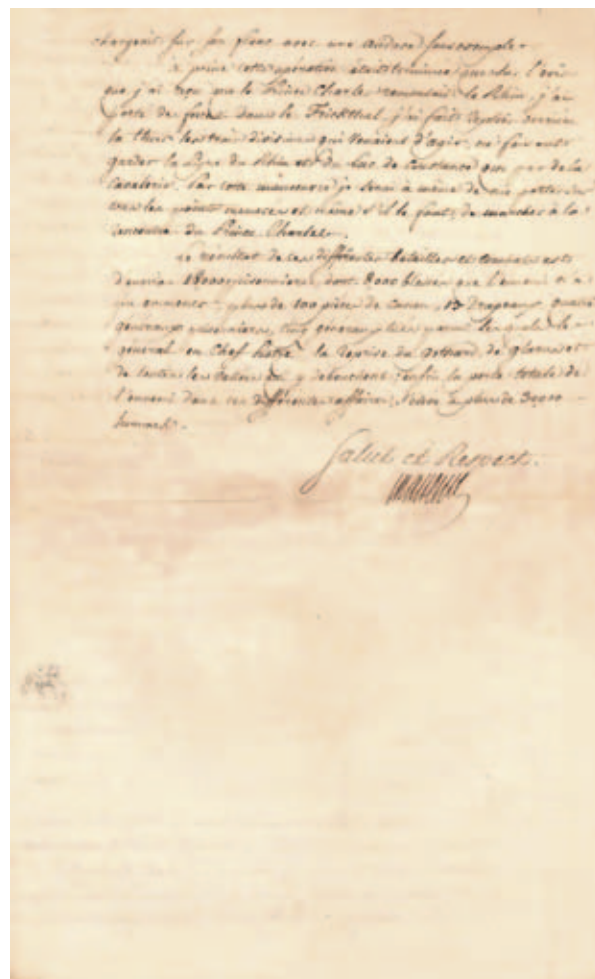 chargeait sur son flanc avec une audace sans exemple.
à peine cette opération était terminée que sur l'avis
que j'ai reçu que le Prince Charles remontait le Rhin, j'ai
porté des forces dans le Frickthal, j'ai fait repasser
la Thur les trois divisions qui venaient d'agir, ne faisant
garder la ligne du Rhin et du lac de Constance que par de la
Cavalerie. Par cette manœuvre je serai à même de me porter sur
tous les points menacés et même s'il le faut, de marcher à la
rencontre du Prince Charles.
Le résultat de ces différentes batailles et combats est
d'environ 18000 prisonniers, dont 8000 blessés que l'ennemi n'a
pu emmener, plus de 100 pièces de canon, 13 Drapeaux, quatre
généraux prisonniers, cinq généraux tués parmi lesquels le
général en Chef Hotze, la reprise du Gothard, de Glaris et
de toutes les vallées qui y débouchent, enfin la perte totale de
l'ennemi dans ces différentes affaires, s'élève à plus de 30000
hommes.
Salut et Respect.
Massena